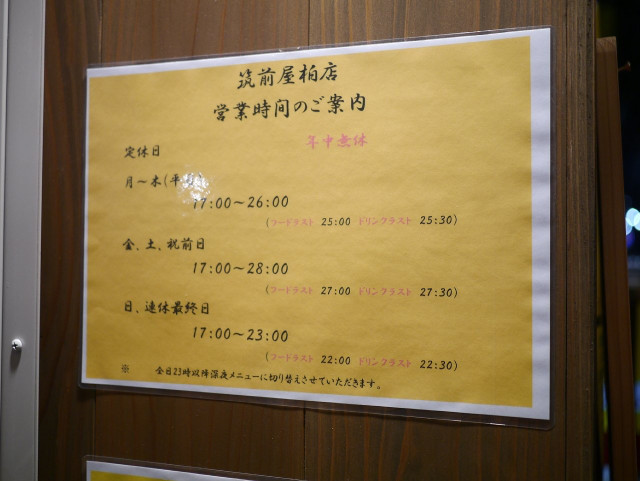 筑前屋柏店
営業時間のご案内
定休日 年中無休
月～木(平日)
17:00～26:00
(フードラスト 25:00 ドリンクラスト 25:30)
金、土、祝前日
17:00～28:00
(フードラスト 27:00 ドリンクラスト 27:30)
日、連休最終日
17:00～23:00
(フードラスト 22:00 ドリンクラスト 22:30)
※ 全日23時以降深夜メニューに切り替えさせていただきます。